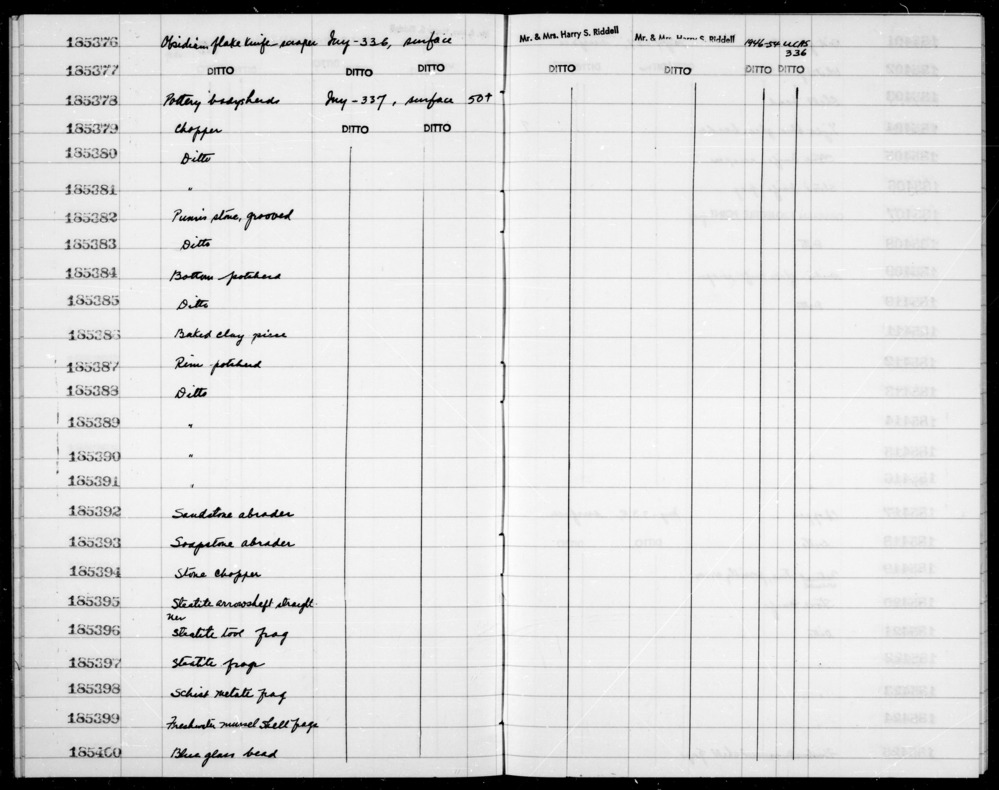 185376 Obsidian flake knife-scraper Iny-336, surface Mr. & Mrs. Harry S. Riddell Mr. & Mrs. Harry S. Riddell 1946-54 UCAS 336
185377 DITTO DITTO DITTO DITTO DITTO DITTO DITTO
185378 Pottery bodysherds Iny-337, surface 50+
185379 Chopper DITTO DITTO
185380 Ditto
185381 "
185382 Pumis stone, grooved
185383 Ditto
185384 Bottom potsherd
185385 Ditto
185386 Baked clay piece
185387 Rim potsherd
185388 Ditto
185389 "
185390 "
185391 "
185392 Sandstone abrader
185393 Soapstone abrader
185394 Stone chopper
185395 Steatite arrowshaft straight-
ner
185396 Steatite tool frag
185397 Steatite frags
185398 Schist metate frag
185399 Freshwater mussel shell frags
185400 Blue glass bead